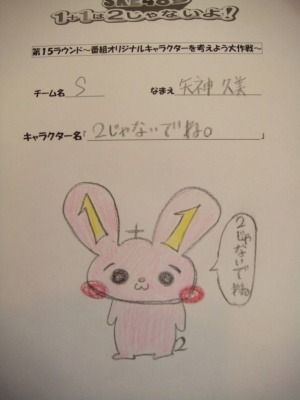 SKE48の
1+1は2じゃないよ!
第15ラウンド~番組オリジナルキャラクターを考えよう大作戦~
チーム名 S なまえ 矢神 久美
キャラクター名「2じゃないでね。」
1 + 1
2じゃ
ないで
ね。
2